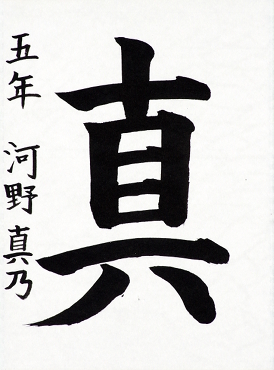 真
五年 河野真乃